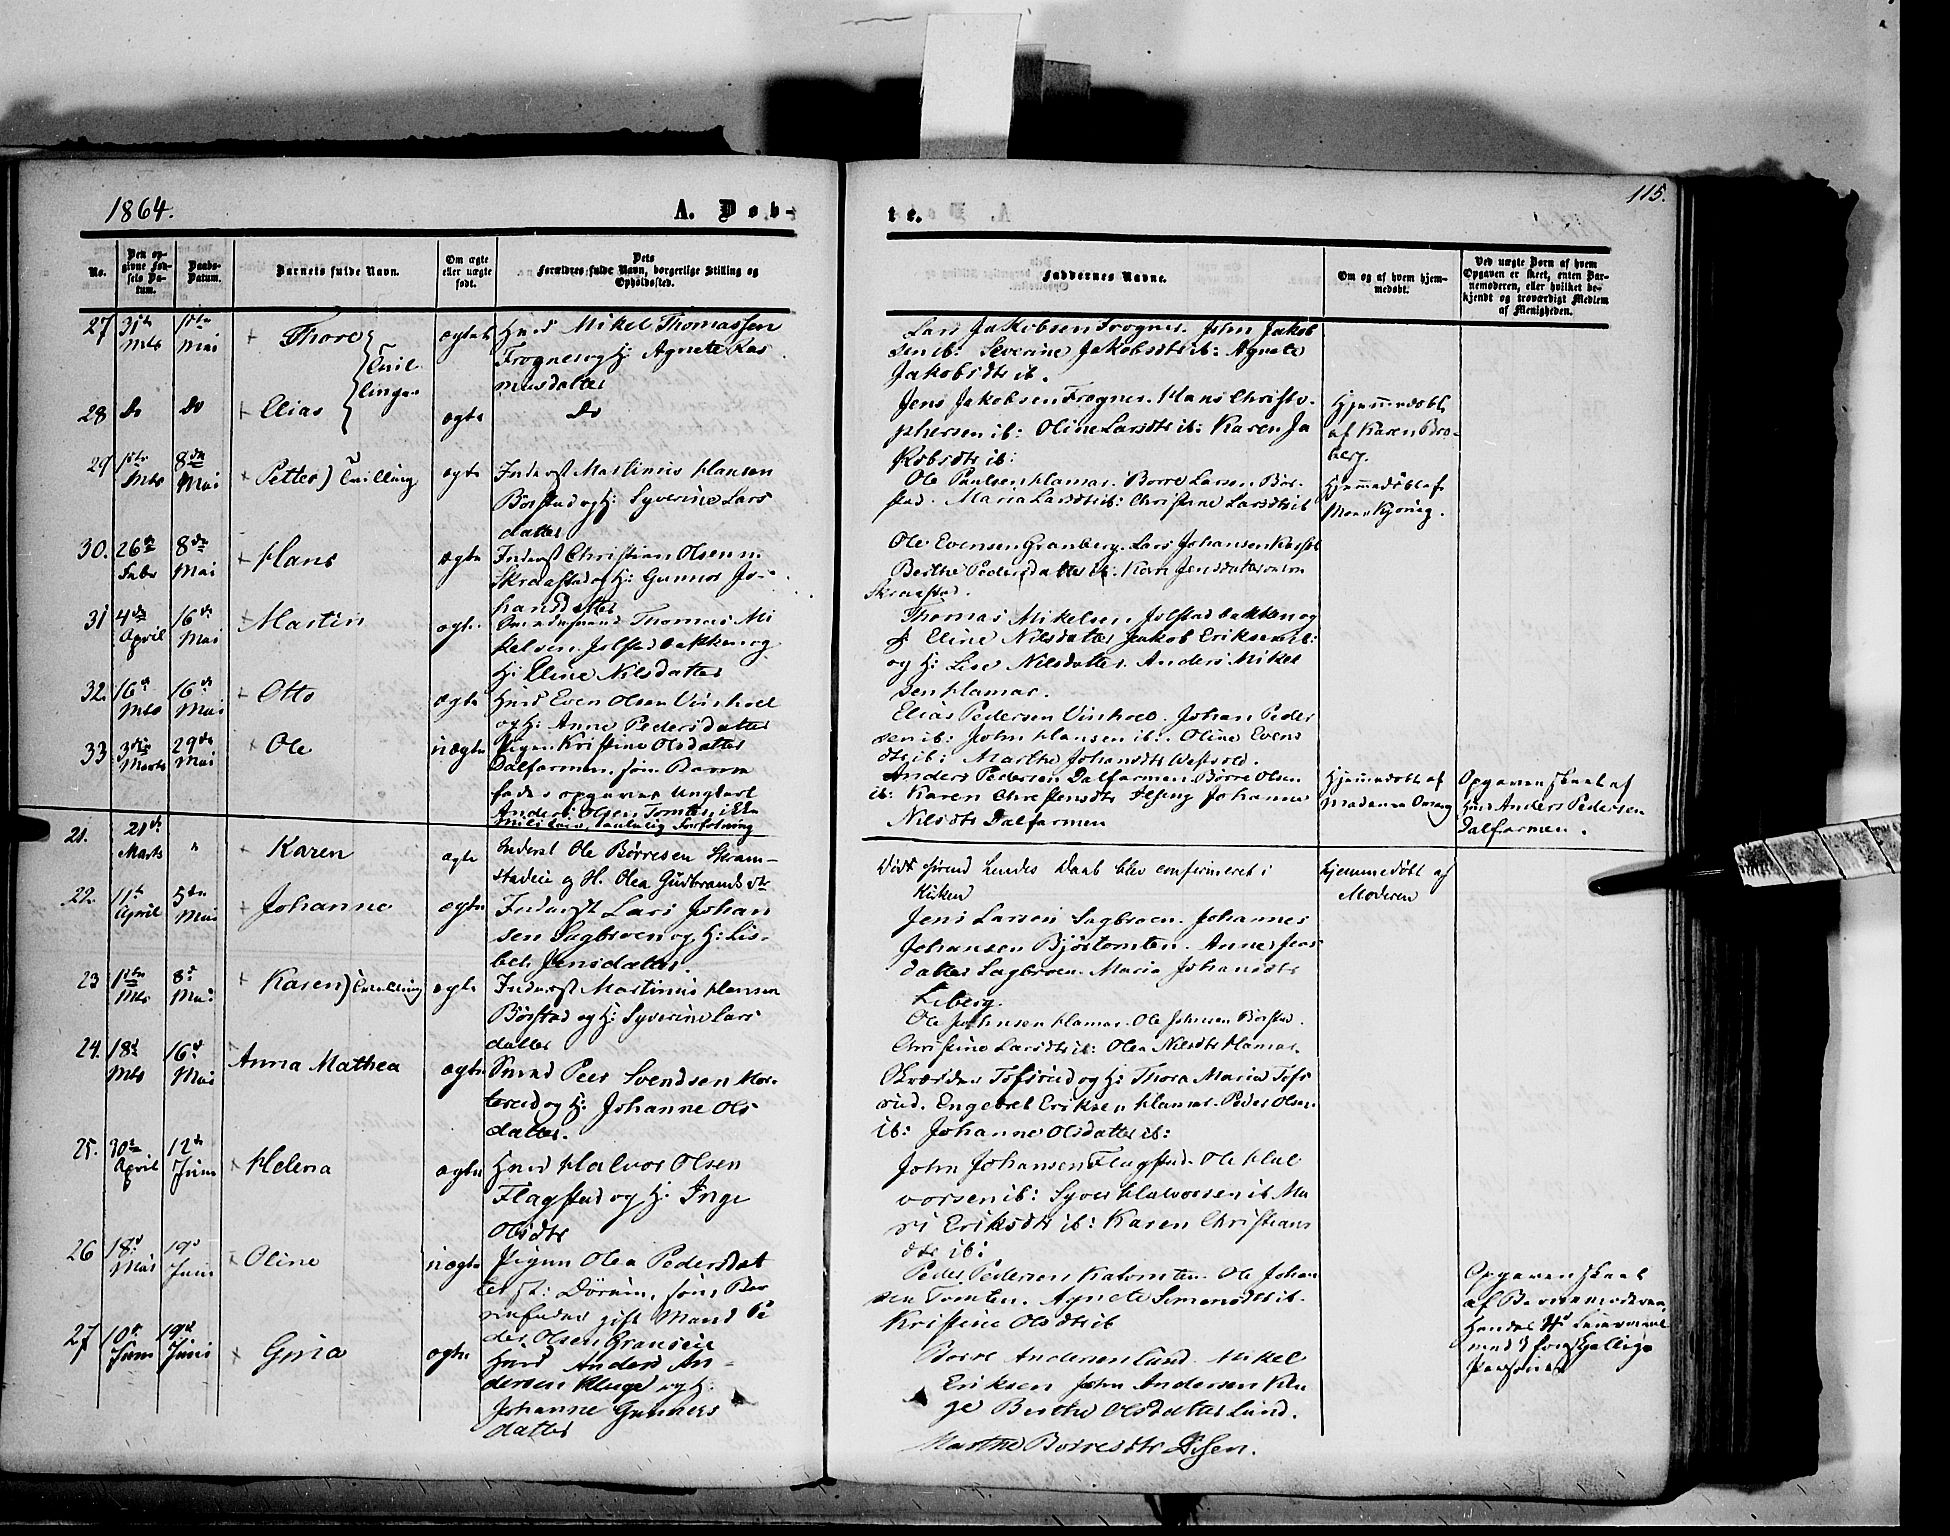 1864.
A. Døb-
No.
Den op-
givne Fød-
sels Da-
tum.
Daabs-
Datum.
Barnets fulde Navn.
Om ægte
eller uægte
født.
Dets
Forældres fulde Navn, borgerlige Stilling og
Opholdssted.
27
31te
Mts
1ste
Mai
Thore
Tvil-
linger
ægte
Husd Mikel Thomassen
Frogner og H: Agnete Ras
musdatter
28
Do
Do
Elias
ægte
Do
29
1ste
Mts
8de
Mai
Petter) Tvilling
ægte
Inderst Martinus Hansen
Børstad og H: Syverine Lars
datter
30.
26de
Febr
8de
Mai
Hans
ægte
Inderst Christian Olsen
Skraastad og H: Gunnor Jo-
hansdatter
31
4de
April
16de
Mai
Martin
ægte
Gaardmand Thomas Mi
kelsen Jolstadbakken og
H: Eline Nilsdatter
32.
16de
Mts
16de
Mai
Otto
ægte
Husd Even Olsen Vinholl
og H: Anne Pedersdatter
33
3die
Marts
29de
Mai
Ole
uægte
Pigen Kristine Olsdatter
Dalfarmen, som Barne
fader opgives Ungkarl
Anders Olsen Tomten ikke
militær, samlig Forlovning
21.
21de
Marts
"
Karen
ægte
Inderst Ole Børresen Skram-
stadeie og H. Olea Gudbrandsdtr
22.
11te
April
5te
Mai
Johanne
ægte
Inderst Lars Johan
sen Sagbroen og H: Lis-
beth Jensdatter.
23
1ste
Mts
8d
Mai
Karen) Tvilling
ægte
Inderst Martinus Hansen
Børstad og H: Syverine Lars
datter
24.
18d
Mts
16d
Mai
Anna Mathea
ægte
Smed Peer Svendsen
og H: Johanne Ols
datter.
25.
30te
April
12te
Juni
Helena
ægte
Husd Halvor Olsen
Flagstad og H: Inge
Olsdtr
26
18d
Mai
19d
Juni
Oline
uægte
Pigen Olea Pedersdat
ter Dørum, som Bar
nefader gift Mand Pe
der Olsen Granseie
27
10de
Juni
19d
Juni
Gina
ægte
Husd Anders An-
dersen Kluge og H:
Johanne Gunners
datter
115.
te.
Faddernes Navne.
Om og af hvem hjem-
medøbt.
Ved uægte Børn af hvem
Opgaven er skeet, enten Bar-
nemoderen, eller hvilket be-
kjendt og troværdigt Medlem
af Menigheden.
Lars Jakobsen Frogner. John Jakob
sen ib: Severine Jakobsdtr ib: Agnete
Jakobsdtr ib.
Jens Jakobsen Frogner. Hans Christo-
phersen ib: Oline Larsdtr ib: Karen Ja
kobsdtr ib:
Hjemmedøbt
af Karen Bro-
berg.
Ole Paulsen Hamar. Børre Larsen Bør-
stad. Maria Larsdtr ib: Christine Larsdtr ib
Hjemmedøbt af
Mor Kjøning.
Ole Evensen Granberg. Lars Johansen
Berthe Pedersdatter ib. Kari Jensdatter
Skraastad.
Thomas Mikelsen Jolstadbakken og
H Eline Nilsdatter Jakob Eriksen ib:
og H: Lise Nilsdatter. Anders Mikel
sen Hamar.
Elias Pedersen Vinholl. Johan Peder
sen ib: John Hansen ib: Oline Evens
dtr ib: Marthe Johansdtr Westvold.
Anders Pedersen Dalfarmen. Børre Olsen
ib: Karen Christensdtr Johanne
Nilsdtr Dalfarmen
Hjemmedøbt af
Madamme
Opgaven skeet af
Husd Anders Pedersen
Dalfarmen.
Døde førend hendes Daab blev confirmeret i
Kirken
Hjemmedøbt af
Moderen
Jens Larsen Sagbroen. Johannes
Johansen Bjørtomten. Anne Jens
datter Sagbroen. Maria Johansdtr
Liberg.
Ole Johnsen Hamar. Ole Johnsen Børstad.
Christine Larsdtr ib: Olea Nilsdtr Hamar.
Tofsrud og H: Thora Maria Tofs
rud. Engebret Eriksen Hamar. Peder Olsen
ib: Johanne Olsdatter ib:
John Johansen Flagstad. Ole Hal
vorsen ib: Syver Halvorsen ib Ma
ri Eriksdtr ib: Karen Christians
dtr ib:
Peder Pedersen Kalvomten. Ole Johan
sen Tomten. Agnete Simensdtr ib.
Kristine Olsdtr ib
Opgaven skeet
af Barnemoderen,
Hendes 4d Leiermaal
med 3 forskjellige
Personer
Børre Andersen Lund. Mikel
Eriksen John Andersen Klu
ge Berthe Olsdatter Lund.
Marthe Borresdtr